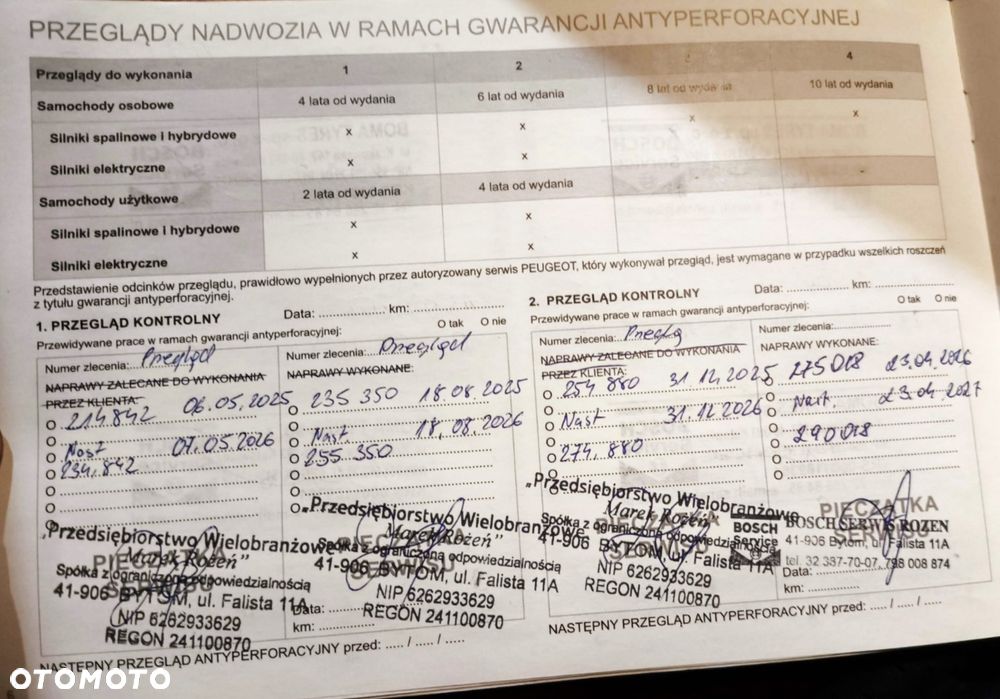 PRZEGLĄDY NADWOZIA W RAMACH GWARANCJI ANTYPERFORACYJNEJ
Przeglądy do wykonania 1 2 3 4
Samochody osobowe 4 lata od wydania 6 lat od wydania 8 lat od wydania 10 lat od wydania
Silniki spalinowe i hybrydowe x x x x
Silniki elektryczne x x
Samochody użytkowe 2 lata od wydania 4 lata od wydania
Silniki spalinowe i hybrydowe x x
Silniki elektryczne x x
Przedstawienie odcinków przeglądu, prawidłowo wypełnionych przez autoryzowany serwis PEUGEOT, który wykonywał przegląd, jest wymagane w przypadku wszelkich roszczeń
z tytułu gwarancji antyperforacyjnej.
1. PRZEGLĄD KONTROLNY Data: .................... km: ....................
Przewidywane prace w ramach gwarancji antyperforacyjnej: O tak O nie
Numer zlecenia: Przegląd
NAPRAWY ZALECANE DO WYKONANIA
PRZEZ KLIENTA:
214.842 06.05.2025
Nast 07.05.2026
234.842
„Przedsiębiorstwo Wielobranżowe
Marek Rożeń”
PIECZĄTKA
SERWISU
Spółka z ograniczoną odpowiedzialnością
41-906 BYTOM, ul. Falista 11A
NIP 6262933629
REGON 241100870
Numer zlecenia: Przegląd
NAPRAWY WYKONANE:
235 350 18.08.2025
Nast. 18.08.2026
255 350
„Przedsiębiorstwo Wielobranżowe
Marek Rożeń”
PIECZĄTKA
SERWISU
Spółka z ograniczoną odpowiedzialnością
41-906 BYTOM, ul. Falista 11A
NIP 6262933629
REGON 241100870
Data:
km:
NASTĘPNY PRZEGLĄD ANTYPERFORACYJNY przed: ..... / ..... / .....
2. PRZEGLĄD KONTROLNY Data: .................... km: ....................
Przewidywane prace w ramach gwarancji antyperforacyjnej: O tak O nie
Numer zlecenia: Przeglą
NAPRAWY ZALECANE DO WYKONANIA
PRZEZ KLIENTA:
254 880 31.12.2025
Nast 31.12.2026
274.880
„Przedsiębiorstwo Wielobranżowe
Marek Rożeń”
Spółka z ograniczoną odpowiedzialnością
41-906 BYTOM, ul. Falista 11A
NIP 6262933629
REGON 241100870
Numer zlecenia:
NAPRAWY WYKONANE:
275 018 23.04.2026
Nast. 23.04.2027
290 018
PIECZĄTKA
BOSCH
Service
BOSCH SERWIS ROZEN
41-906 Bytom, ul. Falista 11A
tel. 32 387-70-07, 798 008 874
Data:
km:
NASTĘPNY PRZEGLĄD ANTYPERFORACYJNY przed: ..... / ..... / .....
OTOMOTO